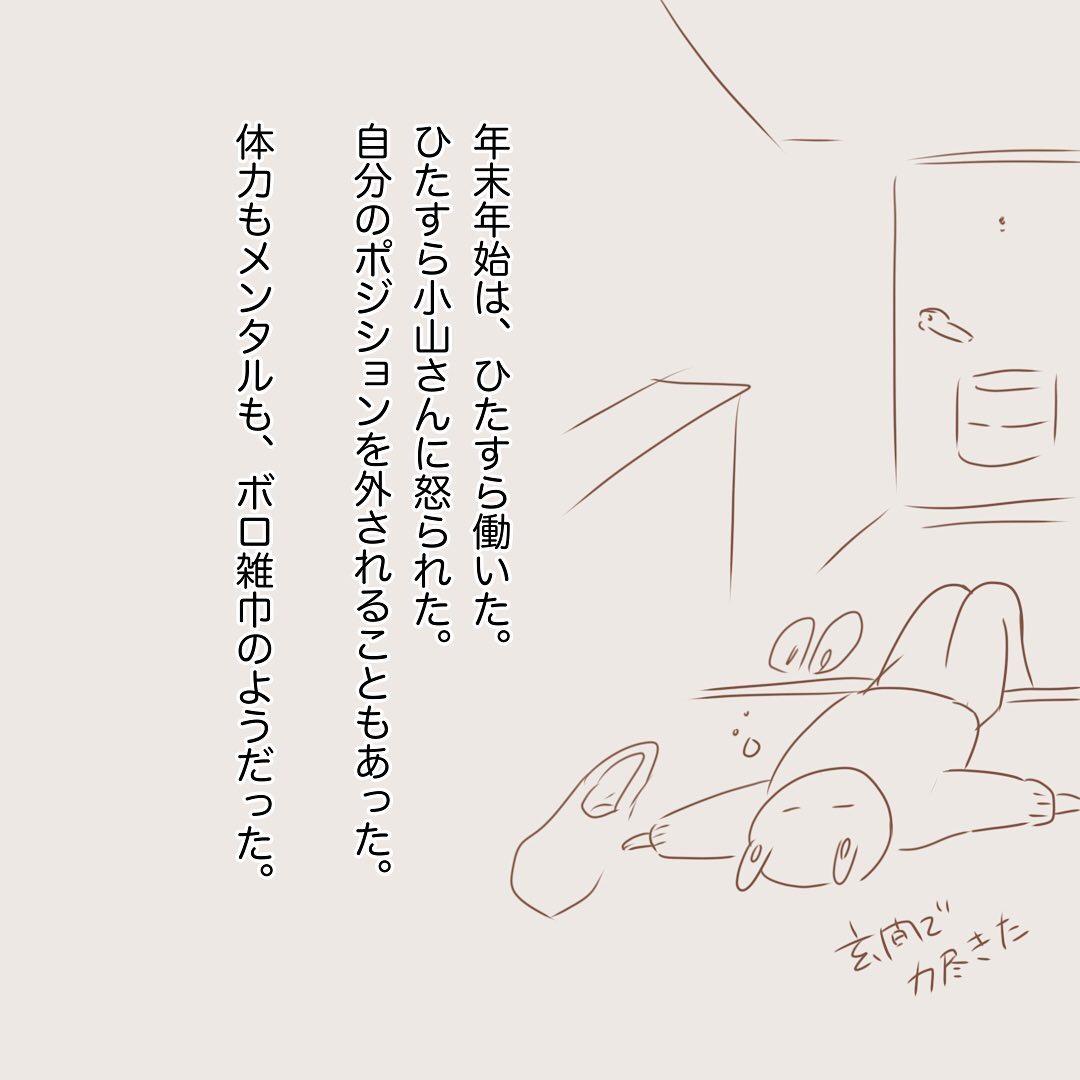 年末年始は、ひたすら働いた。
ひたすら小山さんに怒られた。
自分のポジションを外されることもあった。
体力もメンタルも、ボロ雑巾のようだった。
玄関で
力尽きた